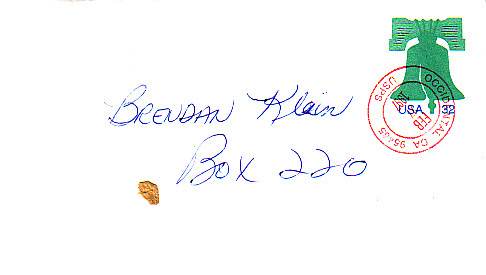 USA 32
OCCIDENTAL CA 95465
USPS
FEB
Brendan Klain
Box 220